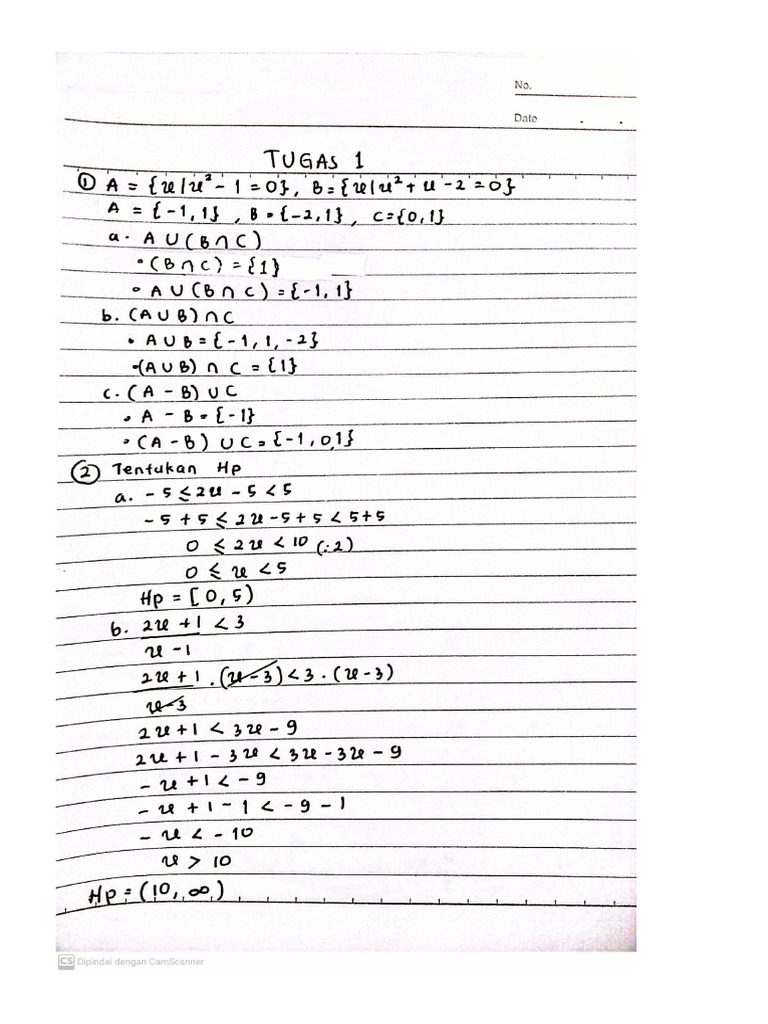 No.
Date . .
TUGAS 1
① A = {x|x² - 1 = 0}, B = {x|x² + x - 2 = 0}
A = {-1, 1}, B = {-2, 1}, C = {0, 1}
a. A ∪ (B ∩ C)
• (B ∩ C) = {1}
• A ∪ (B ∩ C) = {-1, 1}
b. (A ∪ B) ∩ C
• A ∪ B = {-1, 1, -2}
• (A ∪ B) ∩ C = {1}
c. (A - B) ∪ C
• A - B = {-1}
• (A - B) ∪ C = {-1, 0, 1}
② Tentukan Hp
a. -5 ≤ 2x - 5 < 5
-5 + 5 ≤ 2x - 5 + 5 < 5 + 5
0 ≤ 2x < 10 (:2)
0 ≤ x < 5
Hp = [0, 5)
b. 2x + 1 < 3
x - 1
2x + 1 . (x - 3) < 3 . (x - 3)
x - 3
2x + 1 < 3x - 9
2x + 1 - 3x < 3x - 3x - 9
- x + 1 < - 9
- x + 1 - 1 < - 9 - 1
- x < - 10
x > 10
Hp = (10, ∞)
CS Dipindai dengan CamScanner